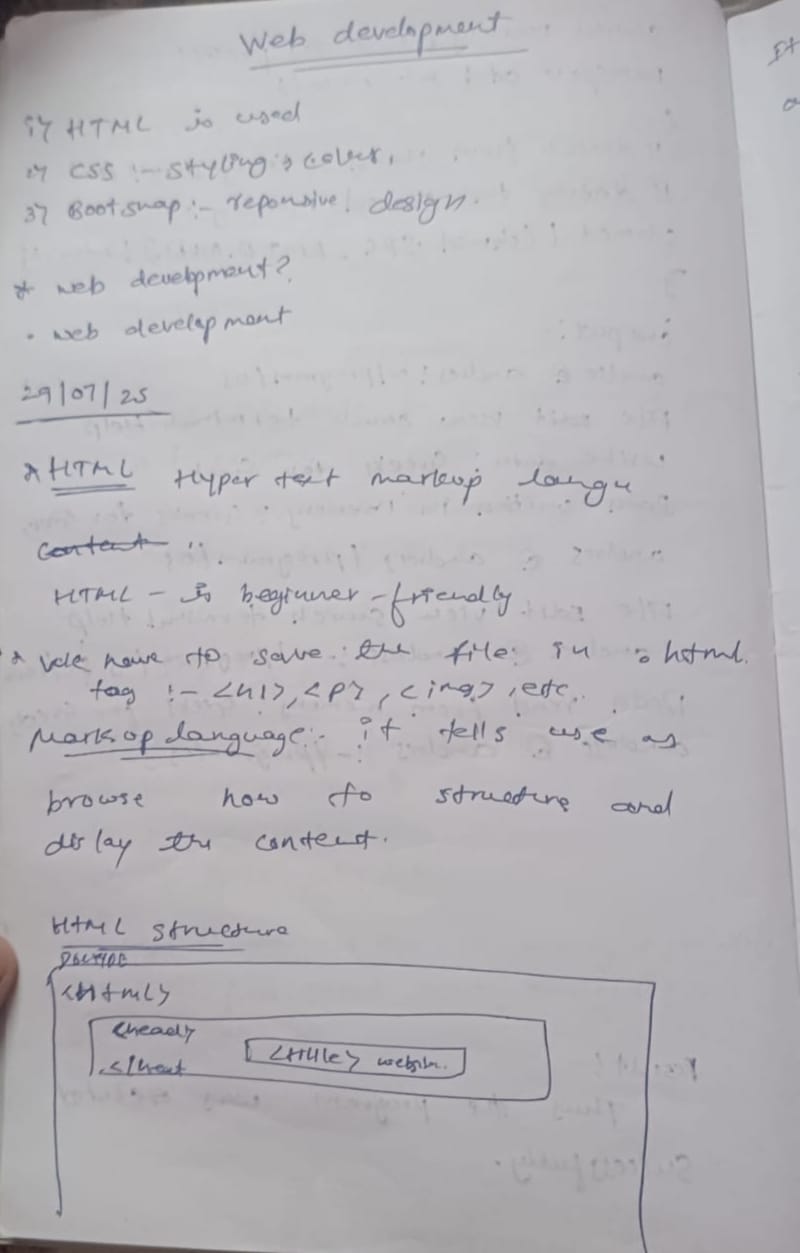 Web development
1) HTML is used
2) CSS :- styling, color,
3) Bootsnap :- reponsive design.
* web development?
• web development
29/07/25
* HTML Hyper text markup langu
Content :.
HTML - is beginner-friendly
* We have to save the file in .html.
tag :- <h1>, <p>, <img>, etc.
Markup language :- it tells use as
browse how to structure and
dislay the content.
HTML structure
DOCTYPE
<Html>
<head>
<title> 
</heat
It